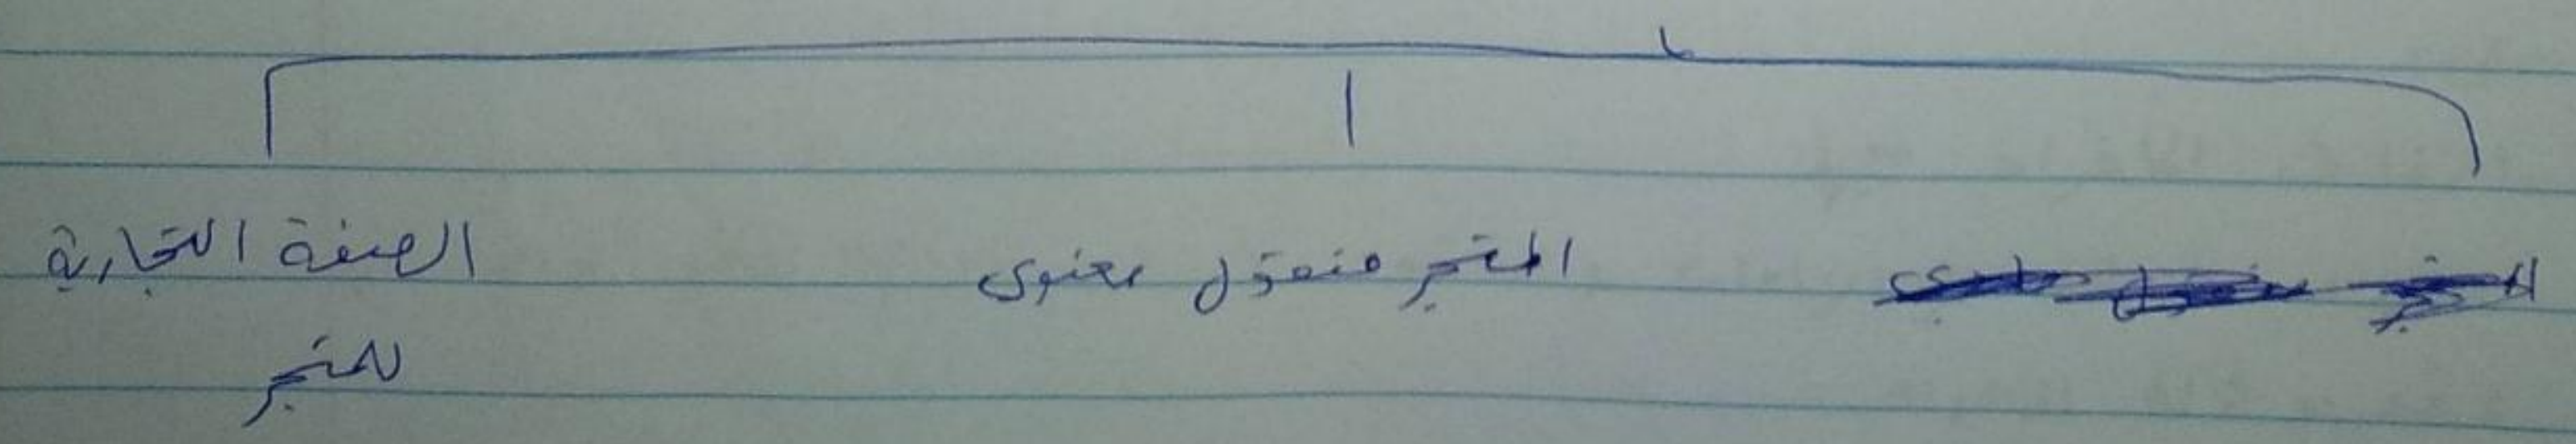 المتجر منقول معنوى
الصفة التجارية
للمتجر